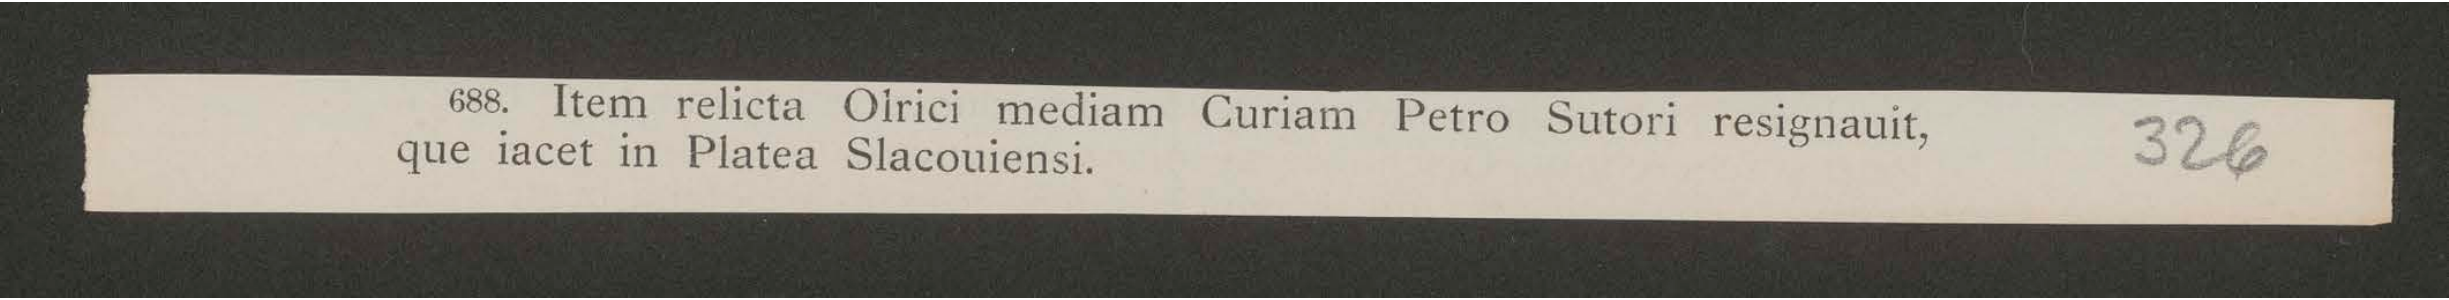 688. Item relicta Olrici mediam Curiam Petro Sutori resignauit, 326
que iacet in Platea Slacouiensi.